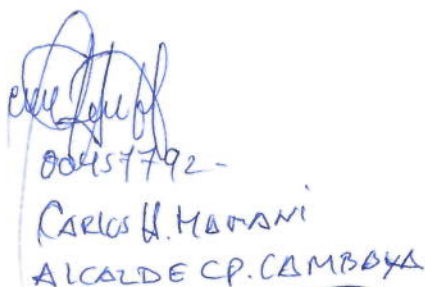 00457792-
CARLOS H. MAMANI
ALCALDE CP. CAMBAYA